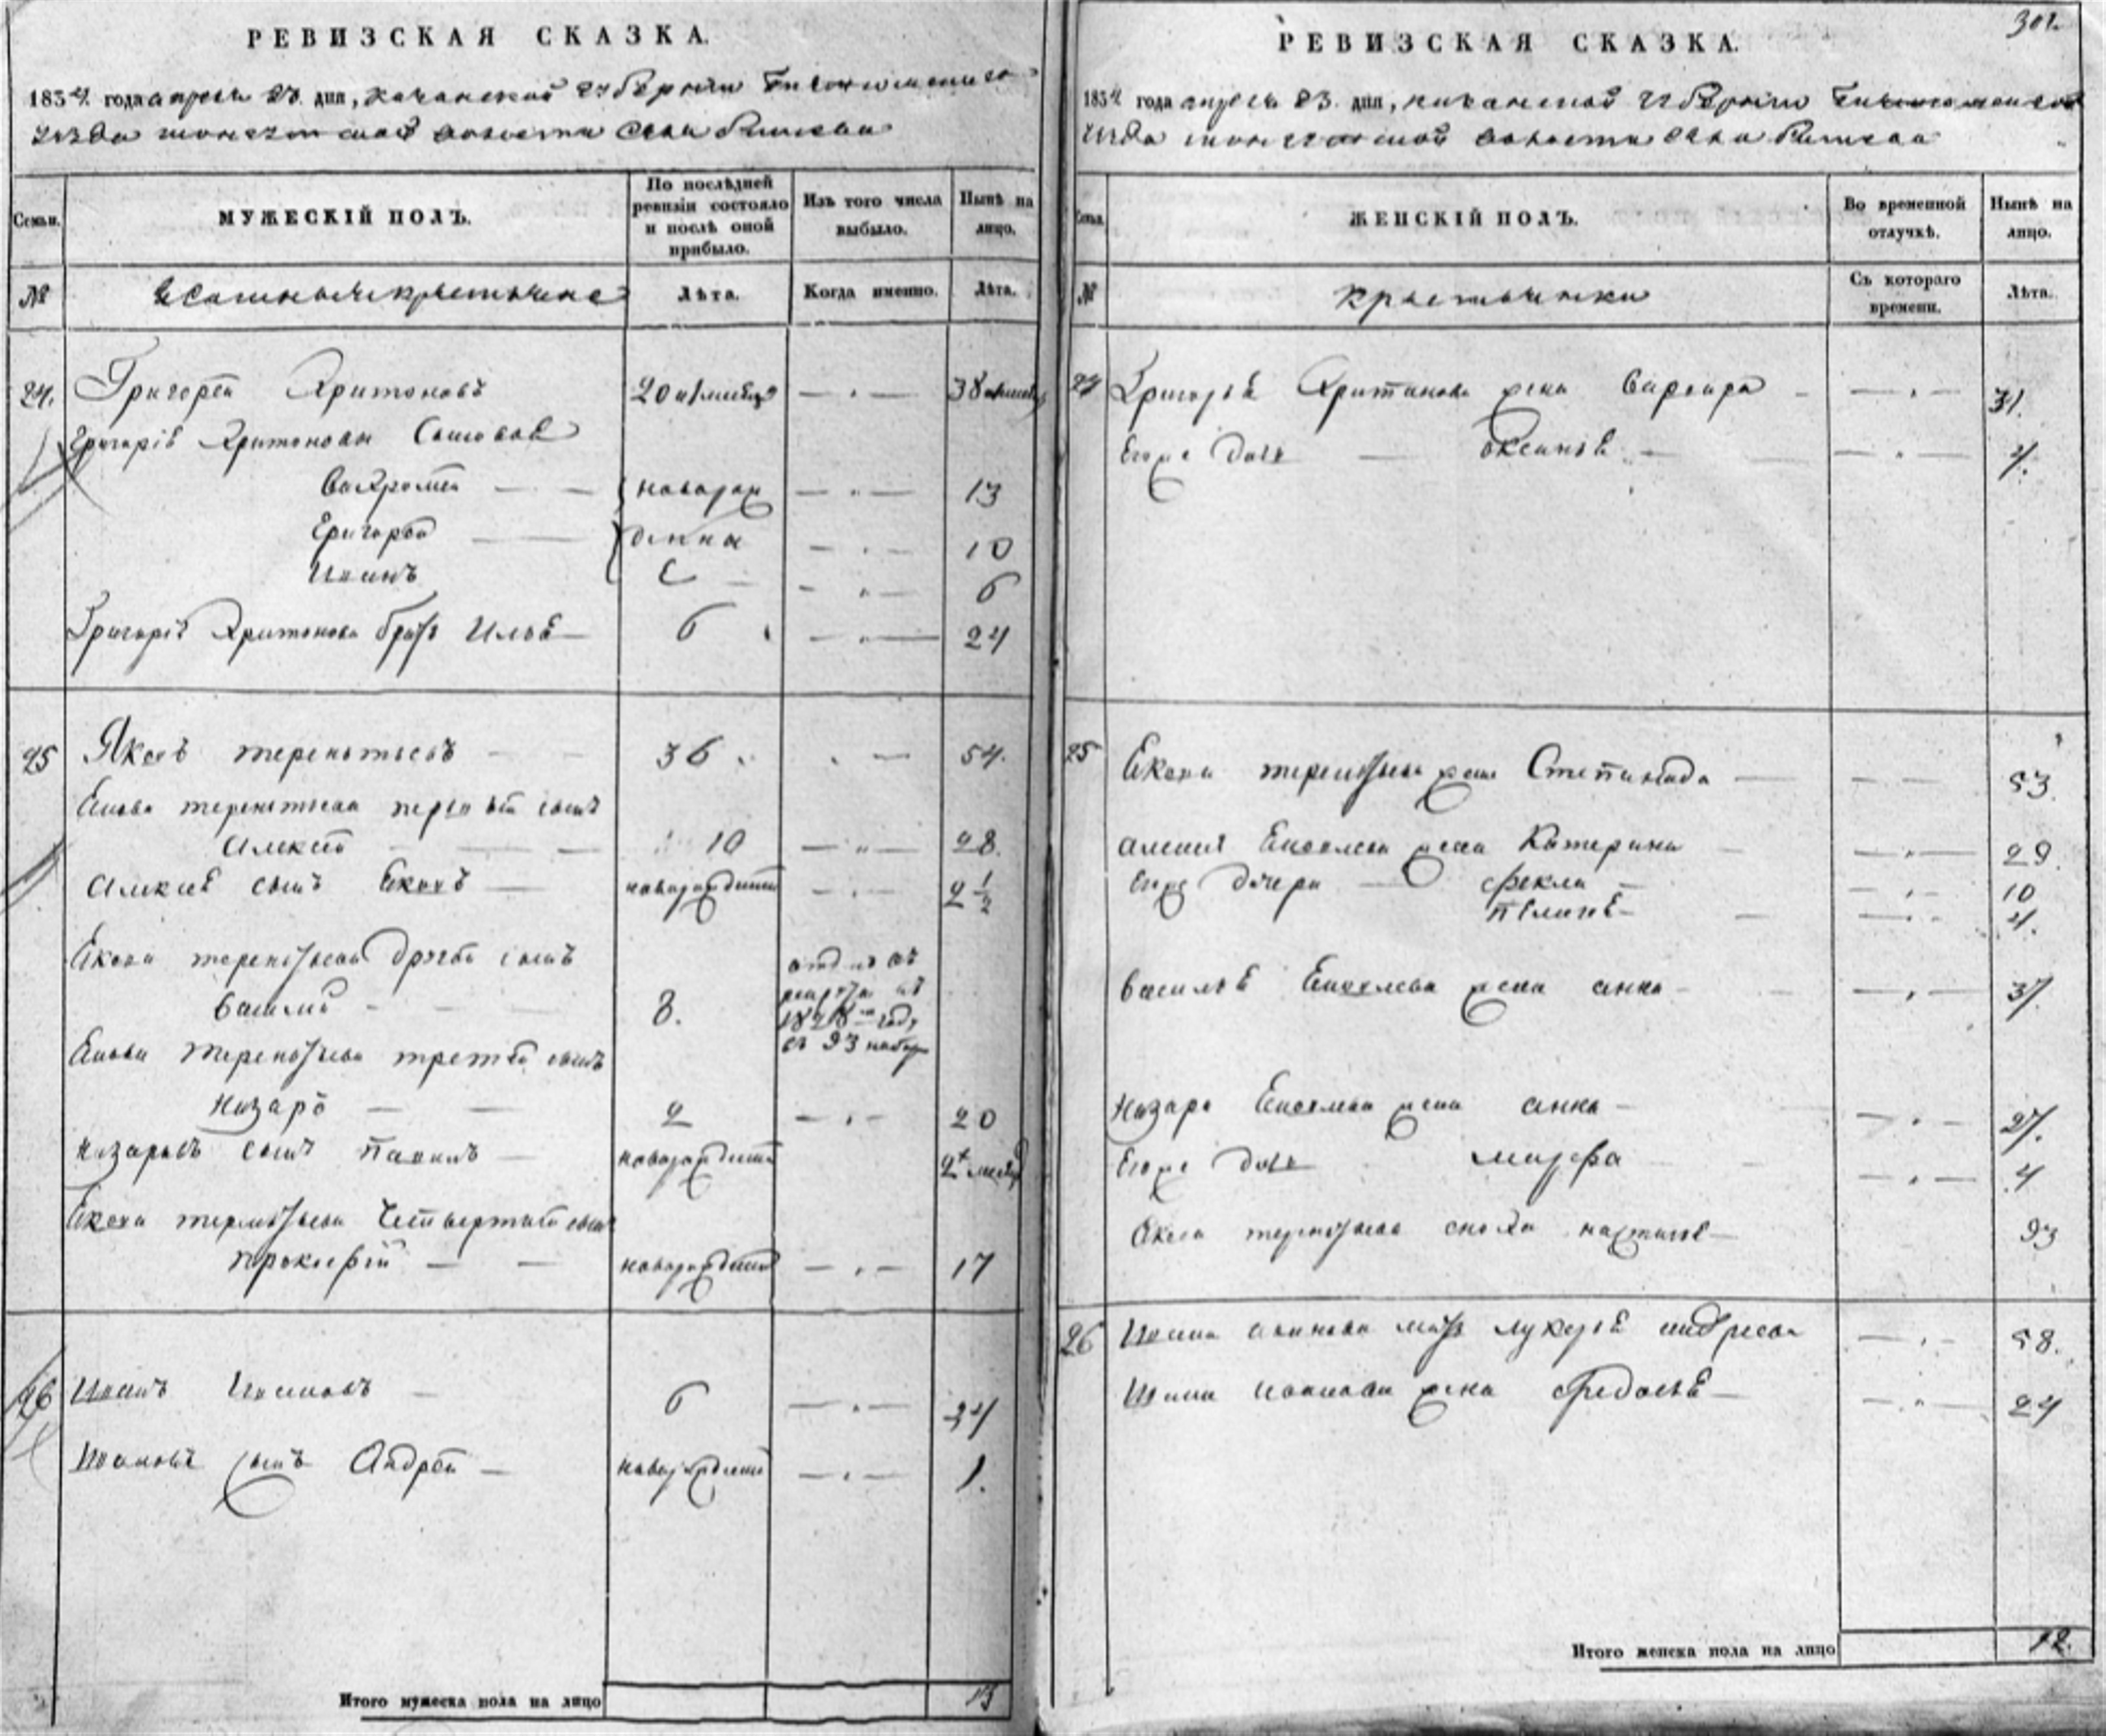 РЕВИЗСКАЯ СКАЗКА.
1834 года апреля 23. дня, казанской губернии
уезда волости села
Семьи.
МУЖЕСКІЙ ПОЛЪ.
По послѣдней ревизіи состояло и послѣ оной прибыло.
Изъ того числа выбыло.
Нынѣ на лицо.
№
Ясашные крестьяне
Лѣта.
Когда именно.
Лѣта.
24. Григорей Харитоновъ 20 38
Григорія Харитонова
Вахромей новорож 13
Григорей денна 10
Иванъ 6
Григорія Харитонова братъ Илья 6 24
25 Яковъ терентьевъ 36 54.
Якова терентьева первый сынъ
Алексей 10 28.
Алексея сынъ Яковъ новорожденной 2 1/2
Якова терентьева другой сынъ
Василей 8. отданъ въ рекруты въ 1828 году въ 93 набор
Якова терентьева третей сынъ
Назаръ 2 20
Назаровъ сынъ Павелъ новорожденной
Якова терентьева четвертый сынъ
Прокофей новорожденной 17
26 Иванъ Ивановъ 6 24
Ивановъ сынъ Андрей новорожденной 1.
Итого мужеска пола на лицо 13
301.
РЕВИЗСКАЯ СКАЗКА.
1834 года апреля 23. дня, казанской губернии
уезда волости села
Семьи.
ЖЕНСКІЙ ПОЛЪ.
Во временной отлучкѣ.
Нынѣ на лицо.
№
крестьянки
Съ котораго времени.
Лѣта.
24 Григорья Харитонова жена Варвара 31.
Егоже дочь Оксинья 4.
25 Якова терентьева жена Степанида 53.
Алексея Яковлева жена Катерина 29.
Егоже дочери Фекла 10
4.
Василья Яковлева жена анна 37.
Назара Яковлева жена анна 27.
Егоже дочь марфа 4
Якова терентьева сноха 93
26 Ивана иванова мать лукерья андреева 58.
Ивана иванова жена Федосья 24
Итого женска пола на лицо 12.